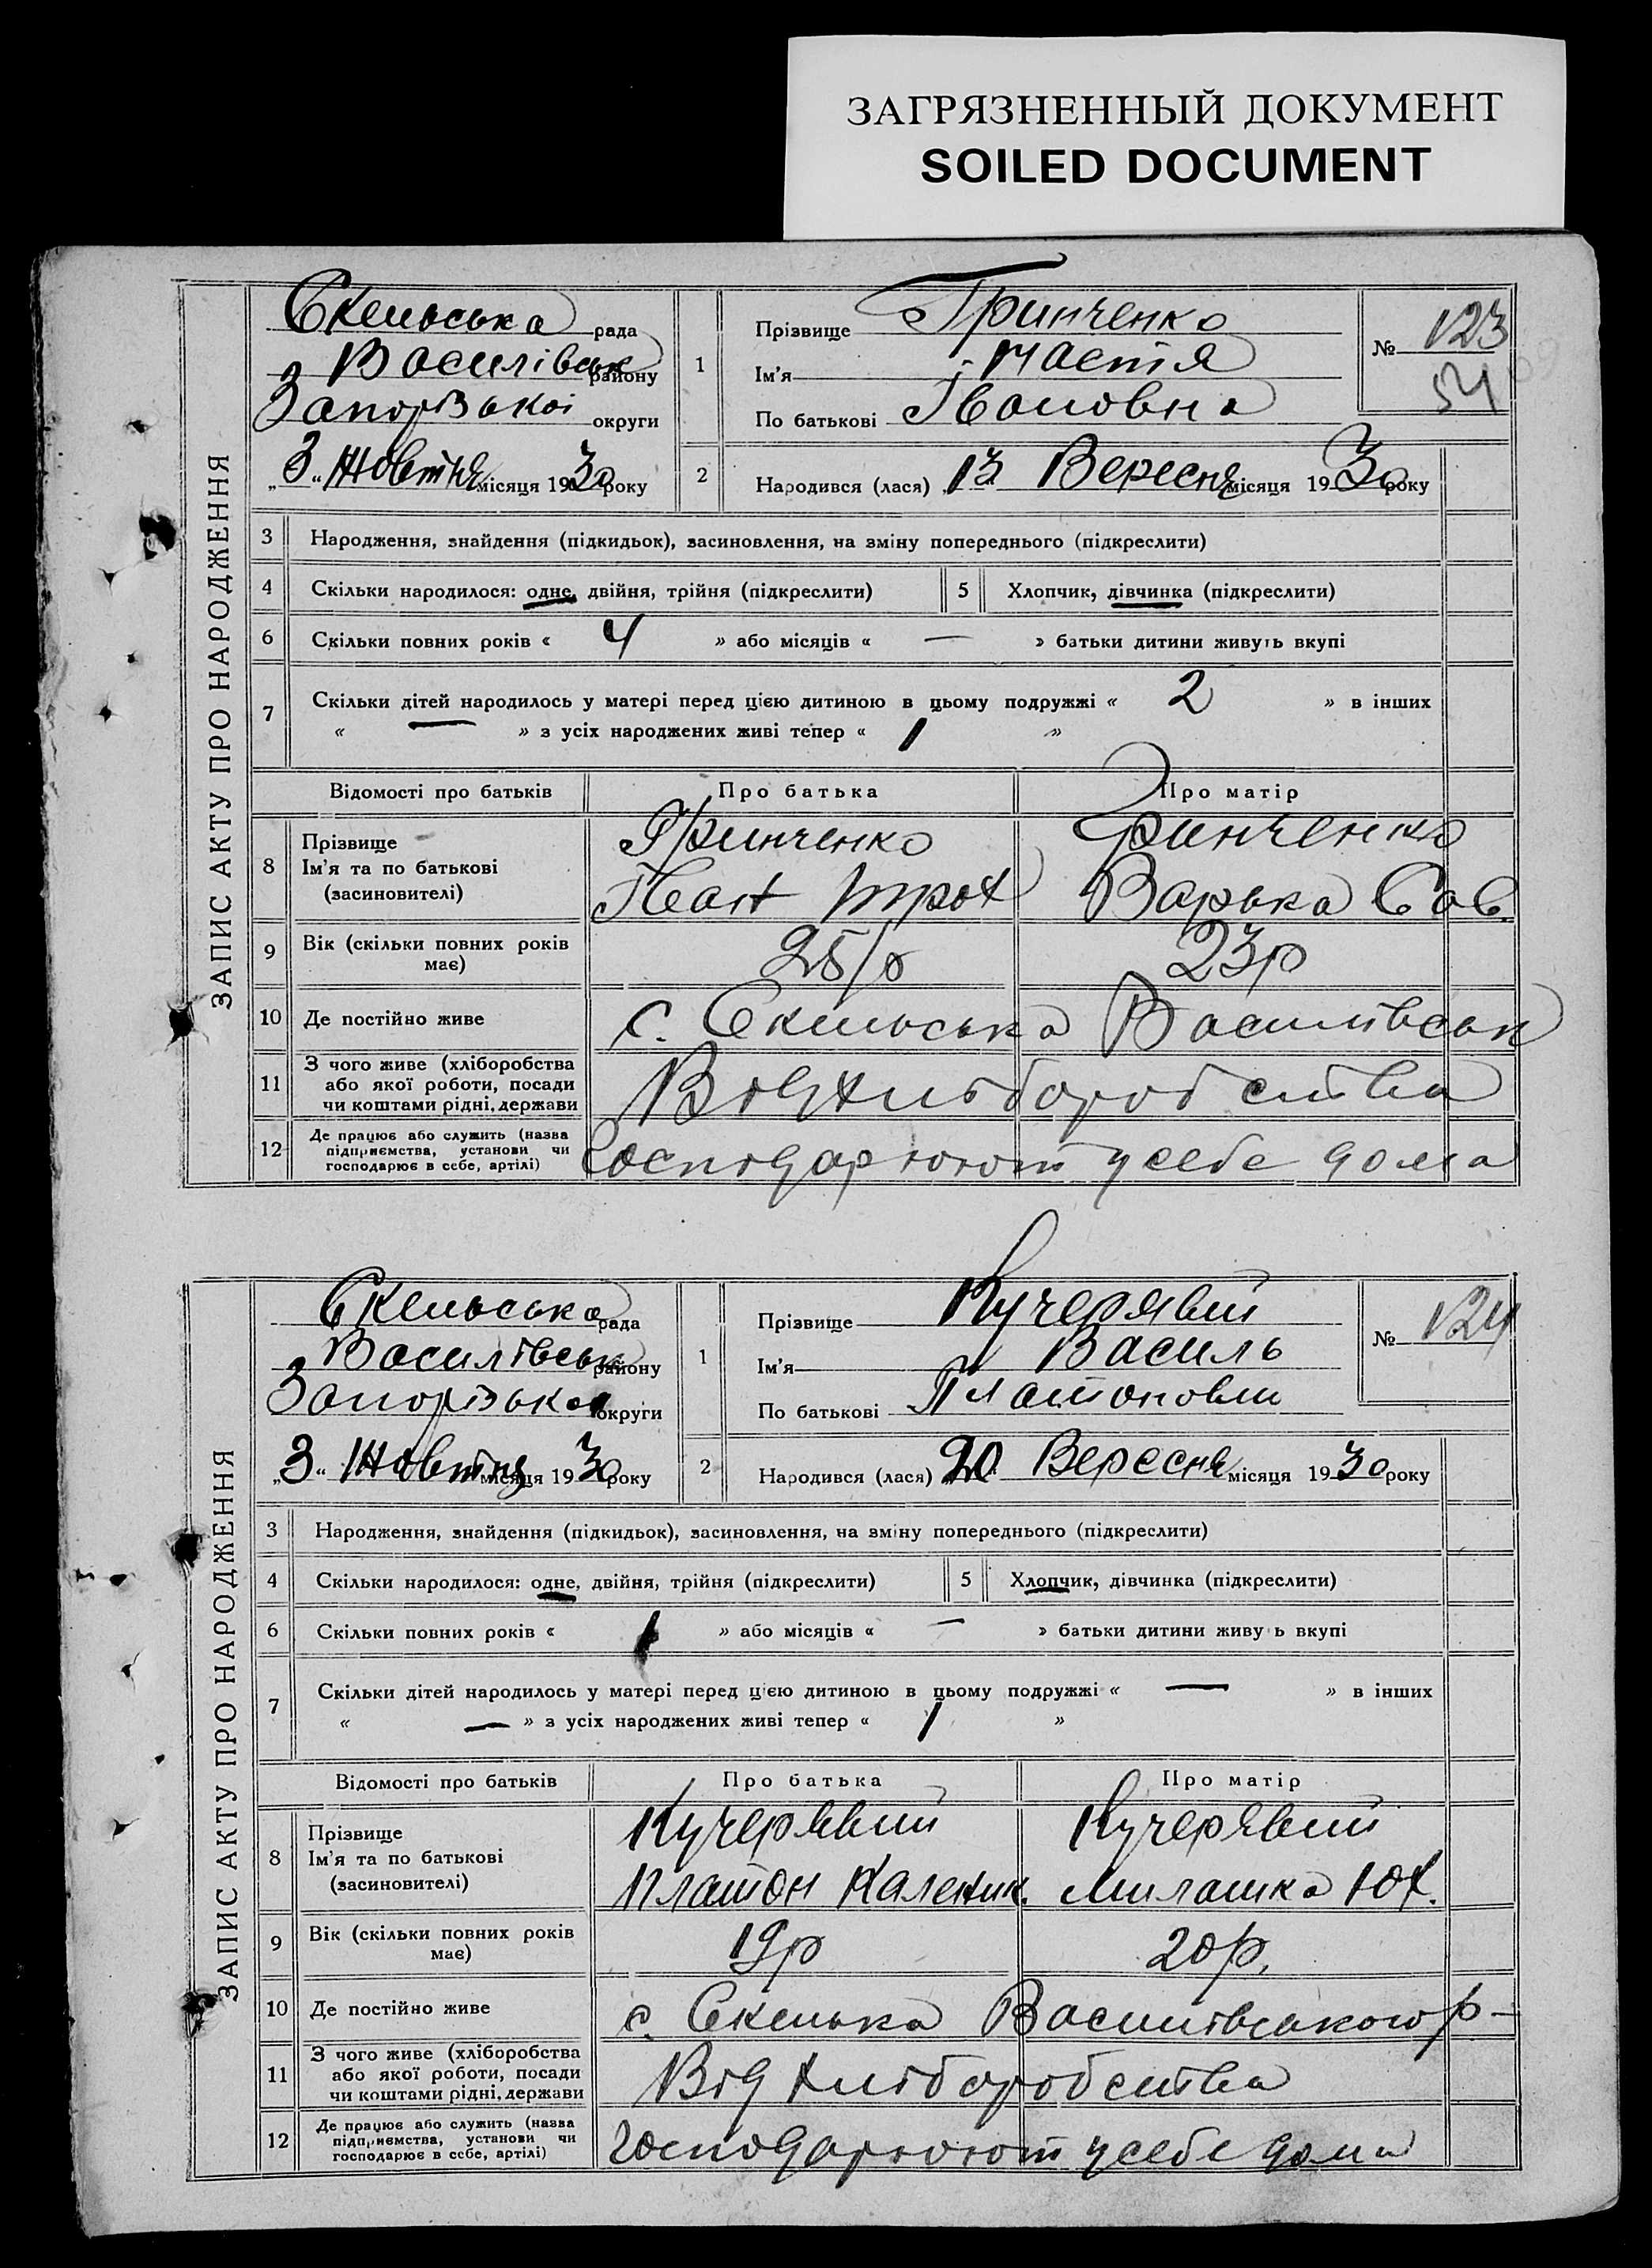 ЗАГРЯЗНЕННЫЙ ДОКУМЕНТ
SOILED DOCUMENT
ЗАПИС АКТУ ПРО НАРОДЖЕННЯ
Скельська рада
Василівськ району
Запорізької округи
„3“ Жовтня місяця 1930 року
1
Прізвище Гринченко
Ім'я Настя
По батькові Івановна
№ 123
54
2
Народився (лася) 13 Вересня місяця 1930 року
3 Народження, знайдення (підкидьок), засиновлення, на зміну попереднього (підкреслити)
4 Скільки народилося: одне, двійня, трійня (підкреслити) 5 Хлопчик, дівчинка (підкреслити)
6 Скільки повних років « 4 » або місяців « — » батьки дитини живуть вкупі
7 Скільки дітей народилось у матері перед цією дитиною в цьому подружжі « 2 » в інших
« — » з усіх народжених живі тепер « 1 »
Відомості про батьків Про батька Про матір
8 Прізвище
Ім'я та по батькові
(засиновителі)
Гринченко Гринченко
Варька Сав.
9 Вік (скільки повних років має) 25р 23р
10 Де постійно живе с. Скельська Василівськ
11 З чого живе (хліборобства
або якої роботи, посади
чи коштами рідні, держави
Від хліборобства
12 Де працює або служить (назва
підприємства, установи чи
господарює в себе, артілі)
Господарюют у себе дома
ЗАПИС АКТУ ПРО НАРОДЖЕННЯ
Скельська рада
Василівськ району
Запорізької округи
„3“ Жовтня місяця 1930 року
1
Прізвище Кучерявий
Ім'я Василь
По батькові Платонович
№ 124
2
Народився (лася) 20 Вересня місяця 1930 року
3 Народження, знайдення (підкидьок), засиновлення, на зміну попереднього (підкреслити)
4 Скільки народилося: одне, двійня, трійня (підкреслити) 5 Хлопчик, дівчинка (підкреслити)
6 Скільки повних років « 1 » або місяців « — » батьки дитини живу ь вкупі
7 Скільки дітей народилось у матері перед цією дитиною в цьому подружжі « — » в інших
« — » з усіх народжених живі тепер « 1 »
Відомості про батьків Про батька Про матір
8 Прізвище
Ім'я та по батькові
(засиновителі)
Кучерявий Кучерявий
Платон Каленик. Милашка Юх.
9 Вік (скільки повних років має) 19р 20р.
10 Де постійно живе с. Скелька Василівського р-
11 З чого живе (хліборобства
або якої роботи, посади
чи коштами рідні, держави
Від хліборобства
12 Де працює або служить (назва
підприємства, установи чи
господарює в себе, артілі)
Господарюют у себе дома